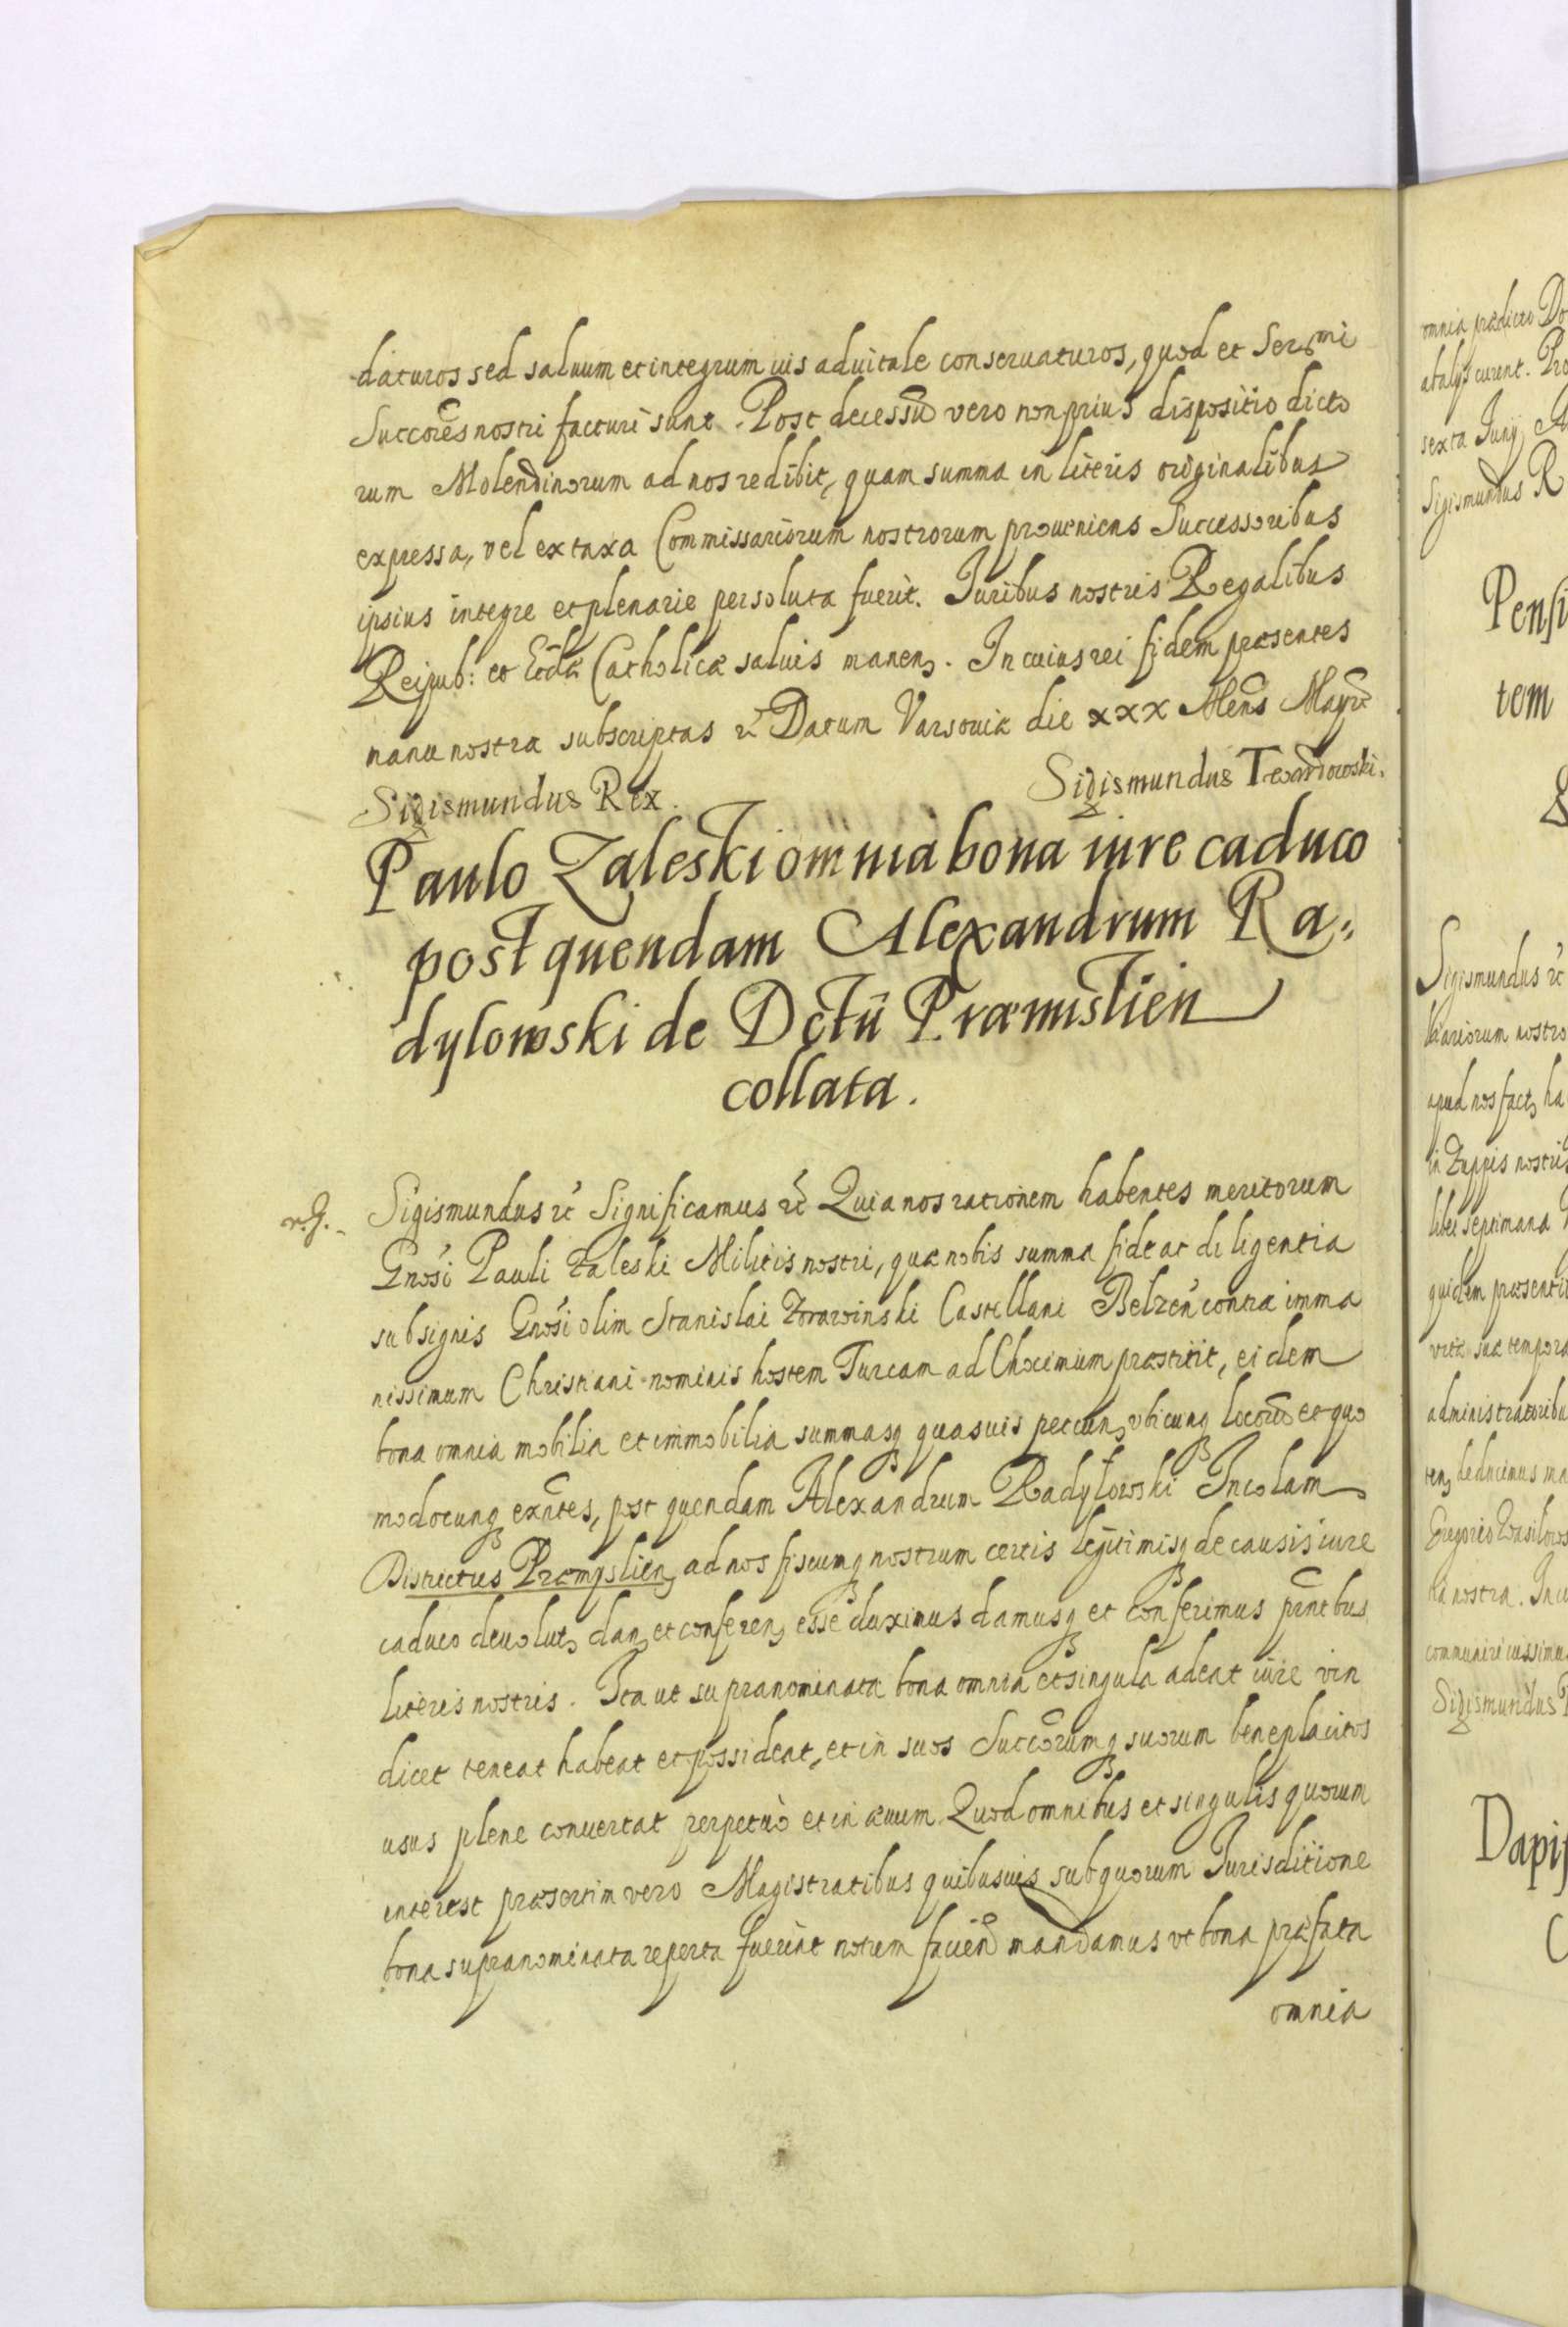 daturos sed saluum et integrum ius aduitale conseruaturos, quod et Sermi
Succores nostri facturi sunt. Post decessũ vero non prius dispositio dicto
rum Molendinorum ad nos redibit, quam summa in literis originalibus
expressa, vel ex taxa Commissariorum nostrorum proueniens Successoribus
ipsius integre et plenarie persoluta fuerit. Iuribus nostris Regalibus
Reipub: et Ecclæ Catholicæ saluis manen. In cuius rei fidem præsentes
manu nostra subscriptas etc Datum Varsouiæ die xxx Mens Maij
Sigismundus Rex.
Sigismundus
Paulo Zaleski omnia bona iure caduco
post quendam Alexandrum Ra=
dylowski de Dctũ Præmislien
collata.
Sigismundus etc Significamus etc Quia nos rationem habentes meritorum
Gnosi Pauli Zaleski Militis nostri, quæ nobis summa fide ac diligentia
sub signis Gnosi olim Stanislai Zorawinski Castellani Belzen contra imma
nissimum Christiani nominis hostem Turcam ad Chocimum præstitit, eidem
bona omnia mobilia et immobilia summasq quasuis peccun, vbicunq locorũ et quo
modocunq exntes, post quendam Alexandrum Radyłowski Incolam
Districtus Præmyslien, ad nos fiscumq nostrum certis legitimisq de causis iure
caduco deuolut, dan, et conferen, esse duximus damusq et conferimus prntibus
literis nostris. Ita ut supranominata bona omnia et singula adeat iure vin
dicet teneat habeat et possideat, et in suos Succorumq suorum beneplacitos
usus plene conuertat perpetuo et in æuum. Quod omnibus et singulis quorum
interest præsertim vero Magistratibus quibusuis sub quorum Iurisditione
bona supranominata reperta fuerint notum faciend mandamus vt bona præfata
omnia
omnia prædicto
sexta Iunij
Sigismundus R
Pensi
tem
Sigismundus etc
apud nos fact, ha
in Zuppis nostris
quidem præsenti
vitæ suæ tempora
administratoribu
ten, deducimus ma
ra nostra. In cu
communiri iussimu
Sigismundus
Dapif